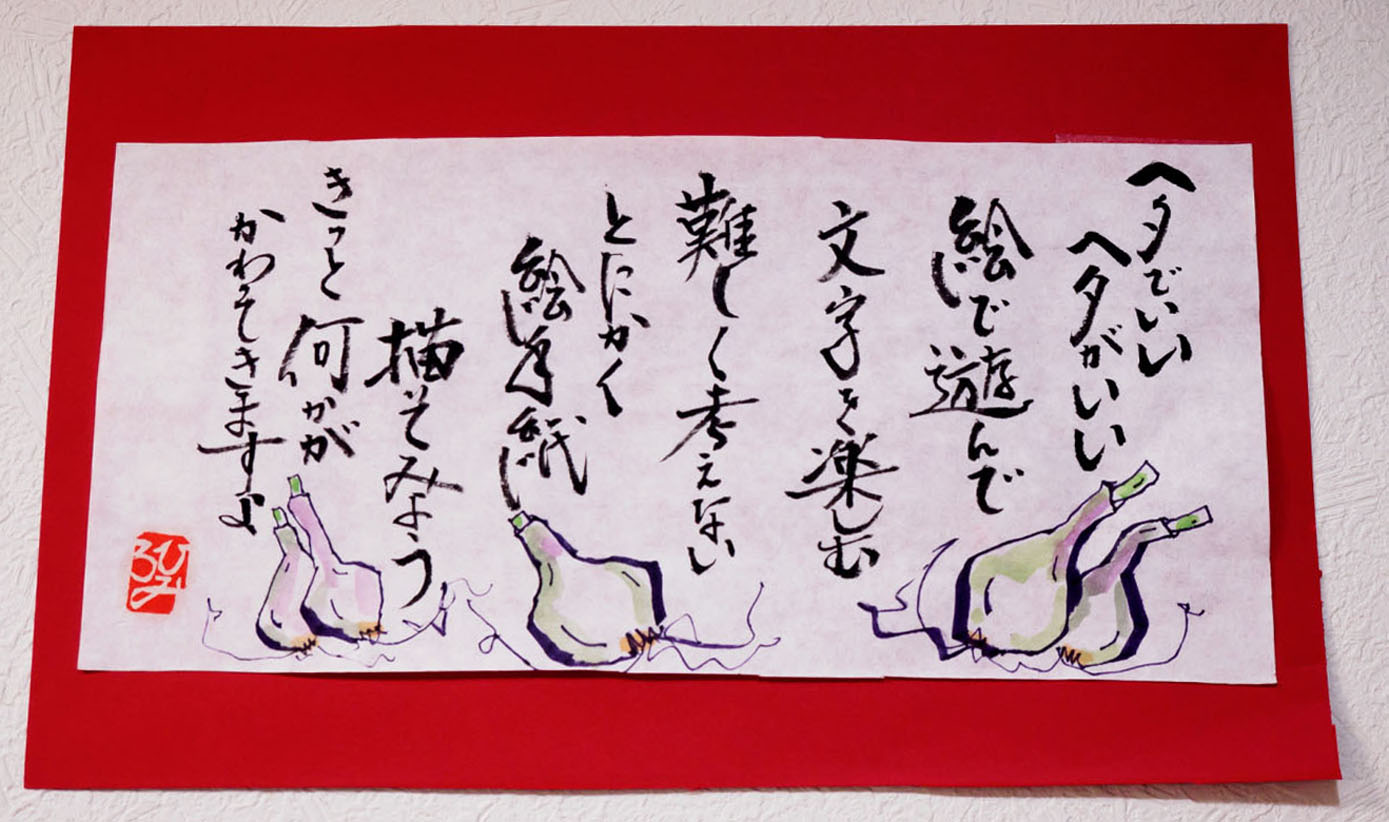 ヘタでいい
ヘタがいい
絵で遊んで
文字を楽しむ
難しく考えない
とにかく
絵手紙
描いてみよう
きっと何かが
かわってきますよ